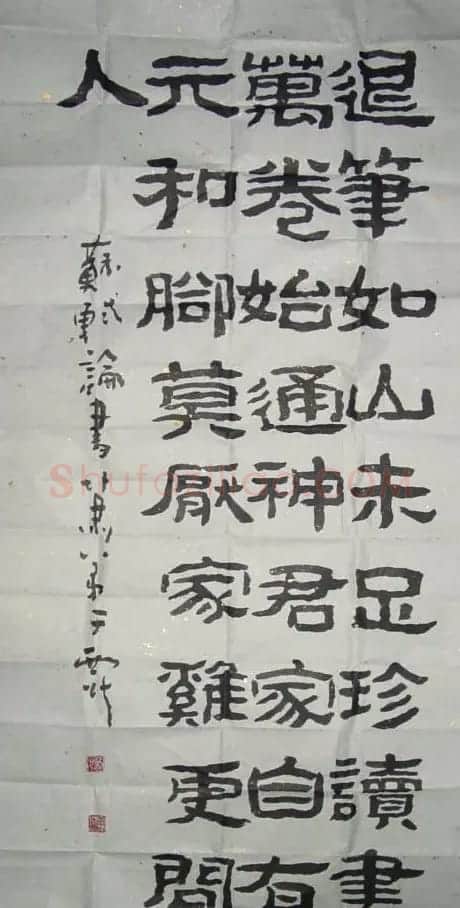 退筆如山未足珍讀書
萬卷始通神君家自有
元和腳莫厭家雞更問
人
論書